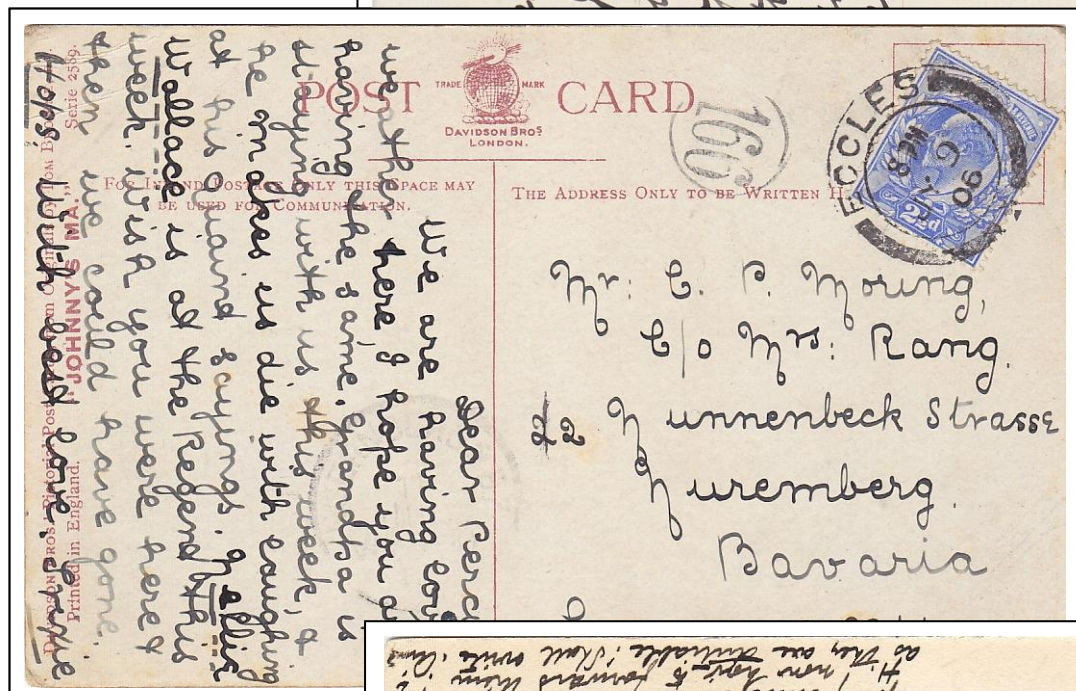 POST CARD
TRADE MARK
DAVIDSON BROS
LONDON.
FOR INLAND POSTAGE ONLY THIS SPACE MAY
BE USED FOR COMMUNICATION.
THE ADDRESS ONLY TO BE WRITTEN H
166
ECCLES
8 PM
06
2½d
Mr: C. P. Moring,
C/o Mrs: Rang.
22 Nunnenbeck Strasse
Nuremberg.
Bavaria
Dear Perc
We are having lov
weather here, I hope you a
having the same. Grandpa is
staying with us this week, &
he makes us die with laughing
at his quaint sayings. Nellie
Wallace is at the Regent this
week. Wish you were here &
then we could have gone.
With best love,
Serie 2589.
"JOHNNY'S MA."
Printed in England.
as they are suitable: shall write